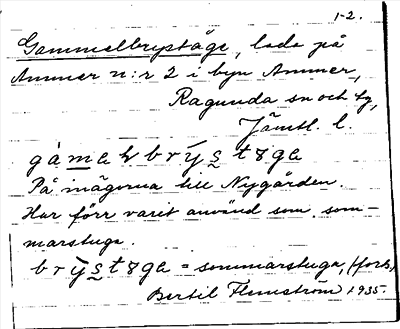 1-2.
Gammelbrystöge, lada på
Ammer n:r 2 i byn Ammer,
Ragunda sn och tg,
Jämtl. l.
På ägorna till Nygården.
Har förr varit använd som som-
marstuga.
= sommarstuga, (forts)
Bertil Flemström 1935.